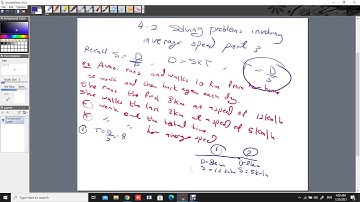 4.2 Solving problems involving
average speed part 3
Recall S = D/T D = S×T T = D/S
ex Avani runs and walks 10 km from her home
to work and then back again each day.
She runs the first 8km at a speed of 12km/h
She walks the last 2km at a speed of 5km/h.
work out the total time
her average speed
① T = D/S = 8
① ②
D=8km D=2km
S=12km/h S=5km/h